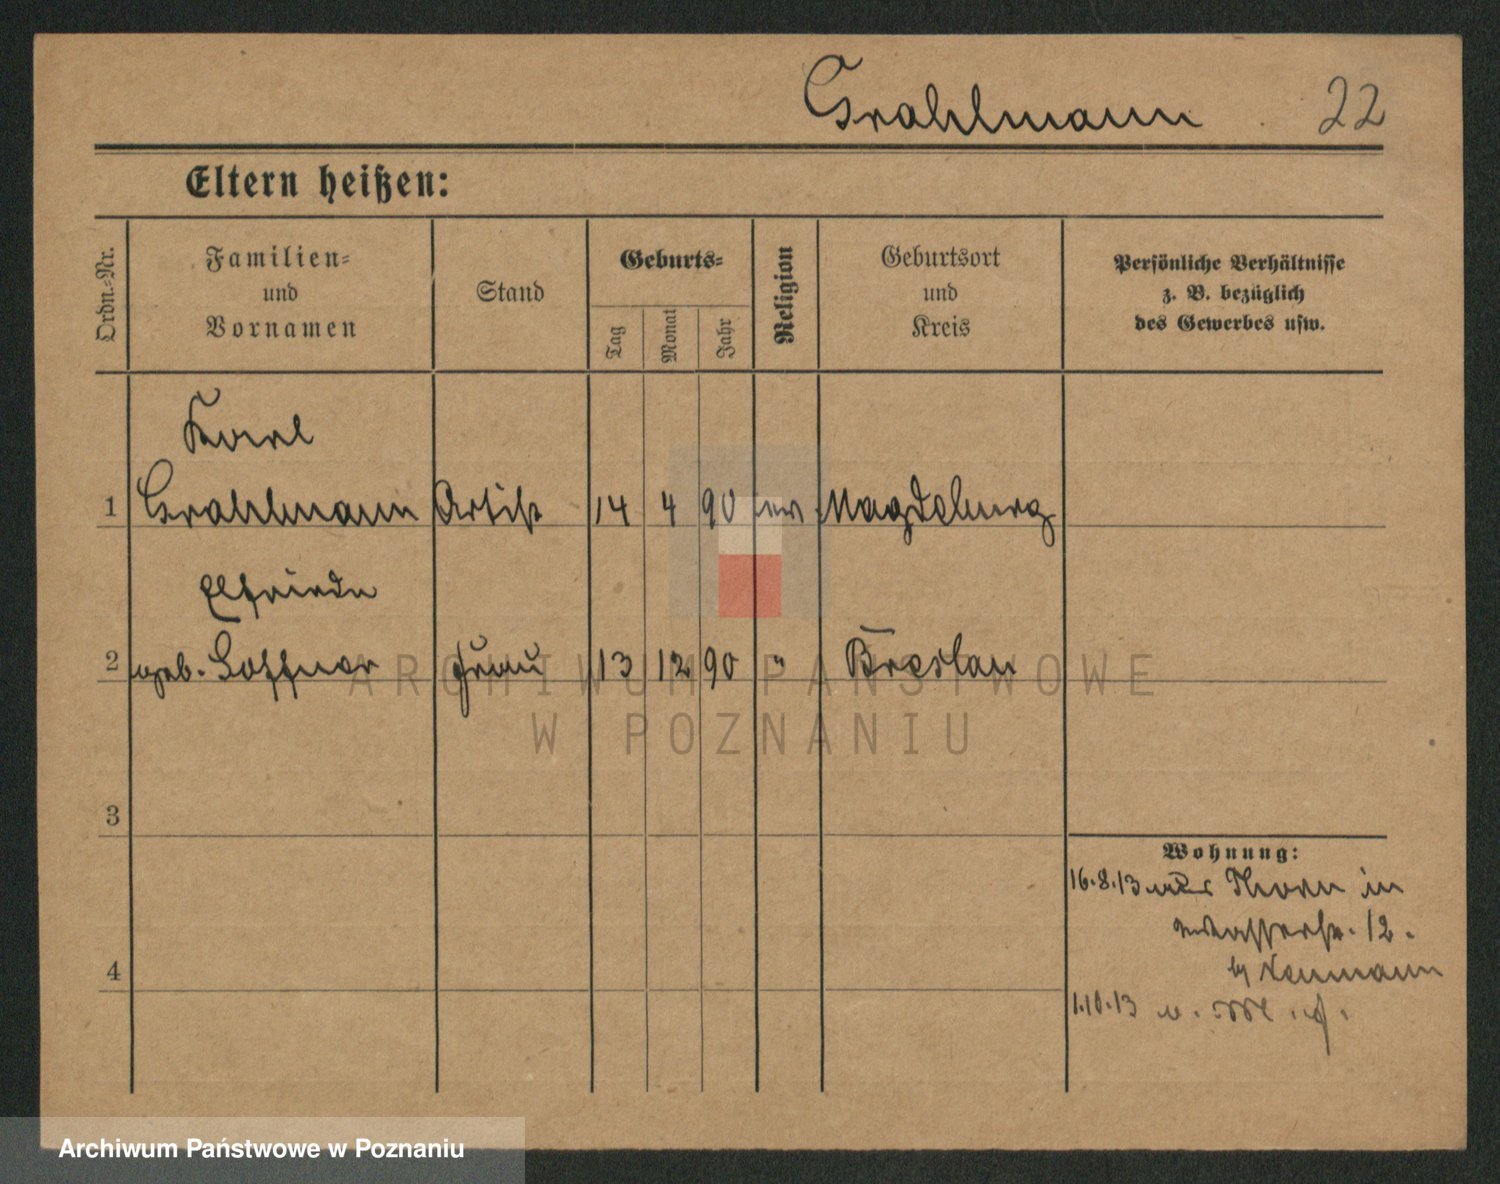 Grahlmann 22
Eltern heißen:
Ordn.-Nr.
Familien-
und
Vornamen
Stand
Geburts-
Tag
Monat
Jahr
Religion
Geburtsort
und
Kreis
Persönliche Verhältnisse
z. B. bezüglich
des Gewerbes usw.
Karl
1 Grahlmann Artist 14 4 90 ev Magdeburg
Elfriede
2 geb. Loffner Frau 13 12 90 " Breslau
3
Wohnung:
16.8.13 aus Thorn in
12.
4
by Neumann
1.10.13 n.
ARCHIWUM PAŃSTWOWE
W POZNANIU
Archiwum Państwowe w Poznaniu